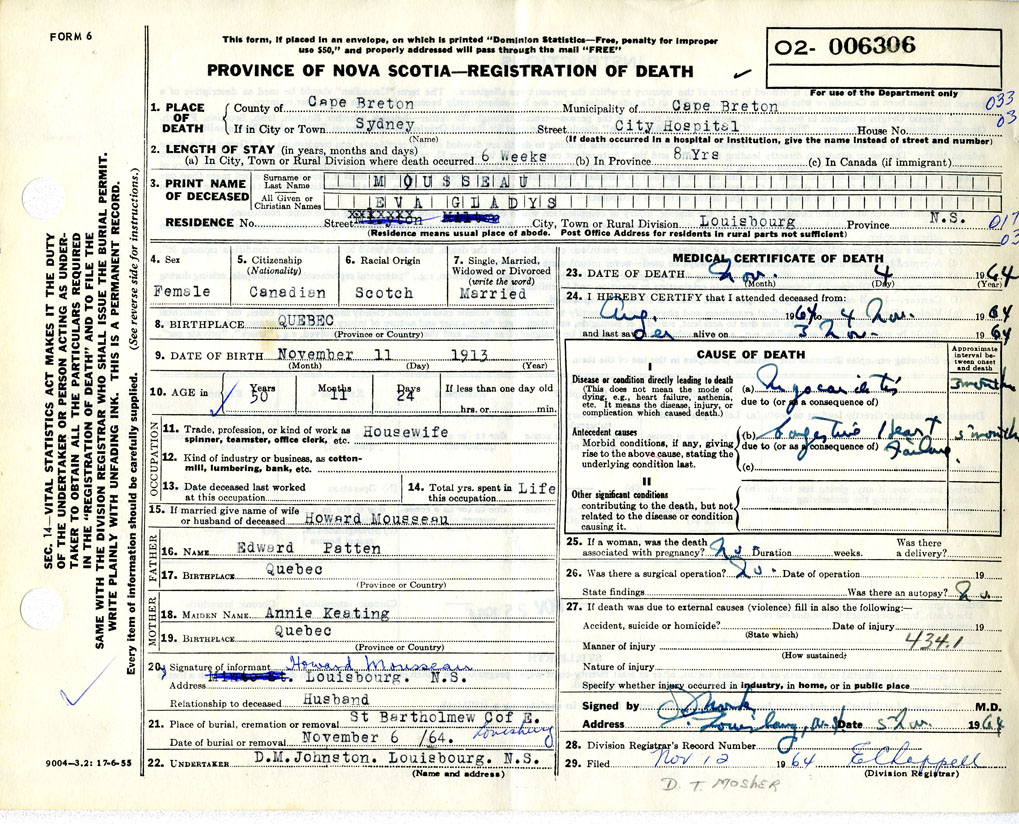 FORM 6
This form, if placed in an envelope, on which is printed "Dominion Statistics—Free, penalty for improper
use $50," and properly addressed will pass through the mail "FREE"
PROVINCE OF NOVA SCOTIA—REGISTRATION OF DEATH
02- 006306
For use of the Department only
033
03
1. PLACE OF DEATH
County of Cape Breton Municipality of Cape Breton
If in City or Town Sydney Street City Hospital House No.
(Name) (If death occurred in a hospital or institution, give the name instead of street and number)
2. LENGTH OF STAY (in years, months and days)
(a) In City, Town or Rural Division where death occurred 6 Weeks (b) In Province 8 Yrs (c) In Canada (if immigrant)
3. PRINT NAME OF DECEASED
Surname or Last Name MOUSSEAU
All Given or Christian Names EVA GLADYS
RESIDENCE No. Street City, Town or Rural Division Louisbourg Province N.S.
(Residence means usual place of abode. Post Office Address for residents in rural parts not sufficient)
017
03
4. Sex
Female
5. Citizenship
(Nationality)
Canadian
6. Racial Origin
Scotch
7. Single, Married,
Widowed or Divorced
(write the word)
Married
8. BIRTHPLACE QUEBEC
(Province or Country)
9. DATE OF BIRTH November 11 1913
(Month) (Day) (Year)
10. AGE in
Years
50
Months
11
Days
24
If less than one day old
hrs. or min.
OCCUPATION
11. Trade, profession, or kind of work as Housewife
spinner, teamster, office clerk, etc.
12. Kind of industry or business, as cotton-
mill, lumbering, bank, etc.
13. Date deceased last worked
at this occupation
14. Total yrs. spent in Life
this occupation
15. If married give name of wife
or husband of deceased Howard Mousseau
FATHER
16. NAME Edward Patten
17. BIRTHPLACE Quebec
(Province or Country)
MOTHER
18. MAIDEN NAME Annie Keating
19. BIRTHPLACE Quebec
(Province or Country)
20. Signature of informant Howard Mousseau
Address Louisbourg. N.S.
Relationship to deceased Husband
21. Place of burial, cremation or removal St Bartholmew Cof E.
Louisburg
Date of burial or removal November 6 /64.
22. UNDERTAKER D.M.Johnston. Louisbourg. N.S.
(Name and address)
MEDICAL CERTIFICATE OF DEATH
23. DATE OF DEATH Nov. 4 1964
(Month) (Day) (Year)
24. I HEREBY CERTIFY that I attended deceased from:
Aug. 1964 to 4 Nov. 1964
and last saw her alive on 3 Nov. 1964
CAUSE OF DEATH
Approximate
interval be-
tween onset
and death
I
Disease or condition directly leading to death
(This does not mean the mode of
dying, e.g., heart failure, asthenia,
etc. It means the disease, injury, or
complication which caused death.)
(a) Myocarditis 3 months
due to (or as a consequence of)
Antecedent causes
Morbid conditions, if any, giving
rise to the above cause, stating the
underlying condition last.
(b) Congestive Heart Failure. 3 months
due to (or as a consequence of)
(c)
II
Other significant conditions
contributing to the death, but not
related to the disease or condition
causing it.
25. If a woman, was the death
associated with pregnancy? No. Duration weeks. Was there
a delivery?
26. Was there a surgical operation? No. Date of operation 19
State findings Was there an autopsy? No
27. If death was due to external causes (violence) fill in also the following:—
Accident, suicide or homicide? Date of injury 19
(State which)
434.1
Manner of injury
(How sustained)
Nature of injury
Specify whether injury occurred in industry, in home, or in public place
Signed by M.D.
Address Louisbourg, N.S. Date 5 Nov. 1964
28. Division Registrar's Record Number
29. Filed Nov 12 1964 E Chappell
(Division Registrar)
D. T. MOSHER
SEC. 14—VITAL STATISTICS ACT MAKES IT THE DUTY
OF THE UNDERTAKER OR PERSON ACTING AS UNDER-
TAKER TO OBTAIN ALL THE PARTICULARS REQUIRED
IN THE "REGISTRATION OF DEATH" AND TO FILE THE
SAME WITH THE DIVISION REGISTRAR WHO SHALL ISSUE THE BURIAL PERMIT.
WRITE PLAINLY WITH UNFADING INK. THIS IS A PERMANENT RECORD.
Every item of information should be carefully supplied. (See reverse side for instructions.)
9004—3.2: 17-6-55